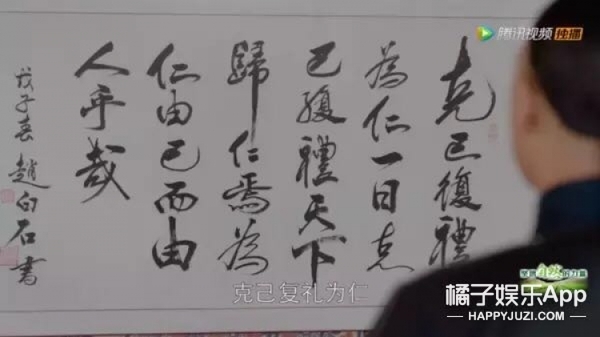 腾讯视频 独播
克己復禮
為仁一日克
己復禮天下
歸仁焉為
仁由己而由
人乎哉
戊子春趙白石書
克己复礼为仁
橘子娱乐App
HAPPYJUZI.COM